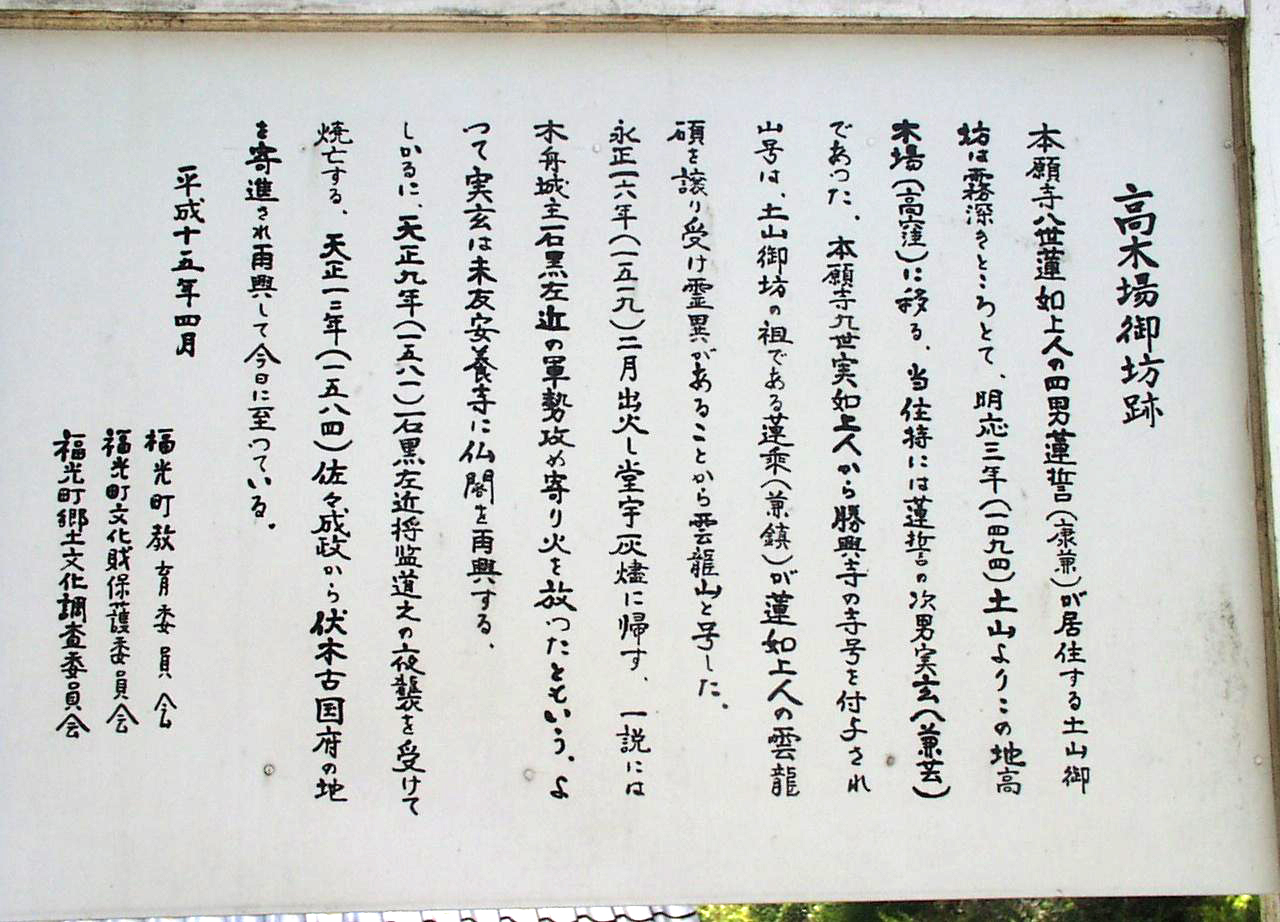 高木場御坊跡
本願寺八世蓮如上人の四男蓮誓(康兼)が居住する土山御
坊は霧深きところとて、明応三年(一四九四)土山よりこの地高
木場(高窪)に移る、当住持には蓮誓の次男実玄(兼芸)
であった、本願寺九世実如上人から勝興寺の寺号を付よされ
山号は、土山御坊の祖である蓮乗(兼鎮)が蓮如上人の雲龍
硯を譲り受け霊異があることから雲龍山と号した、
永正一六年(一五一九)二月出火し堂宇灰燼に帰す、一説には
木舟城主石黒左近の軍勢攻め寄り火を放ったともいう、よ
って実玄は末友安養寺に仏閣を再興する、
しかるに、天正九年(一五八一)石黒左近将监道之の夜襲を受けて
焼亡する、天正一二年(一五八四)佐々成政から伏木古国府の地
を寄進され再興して今日に至っている。
平成十五年四月
福光町教育委員会
福光町文化財保護委員会
福光町郷土文化調査委員会